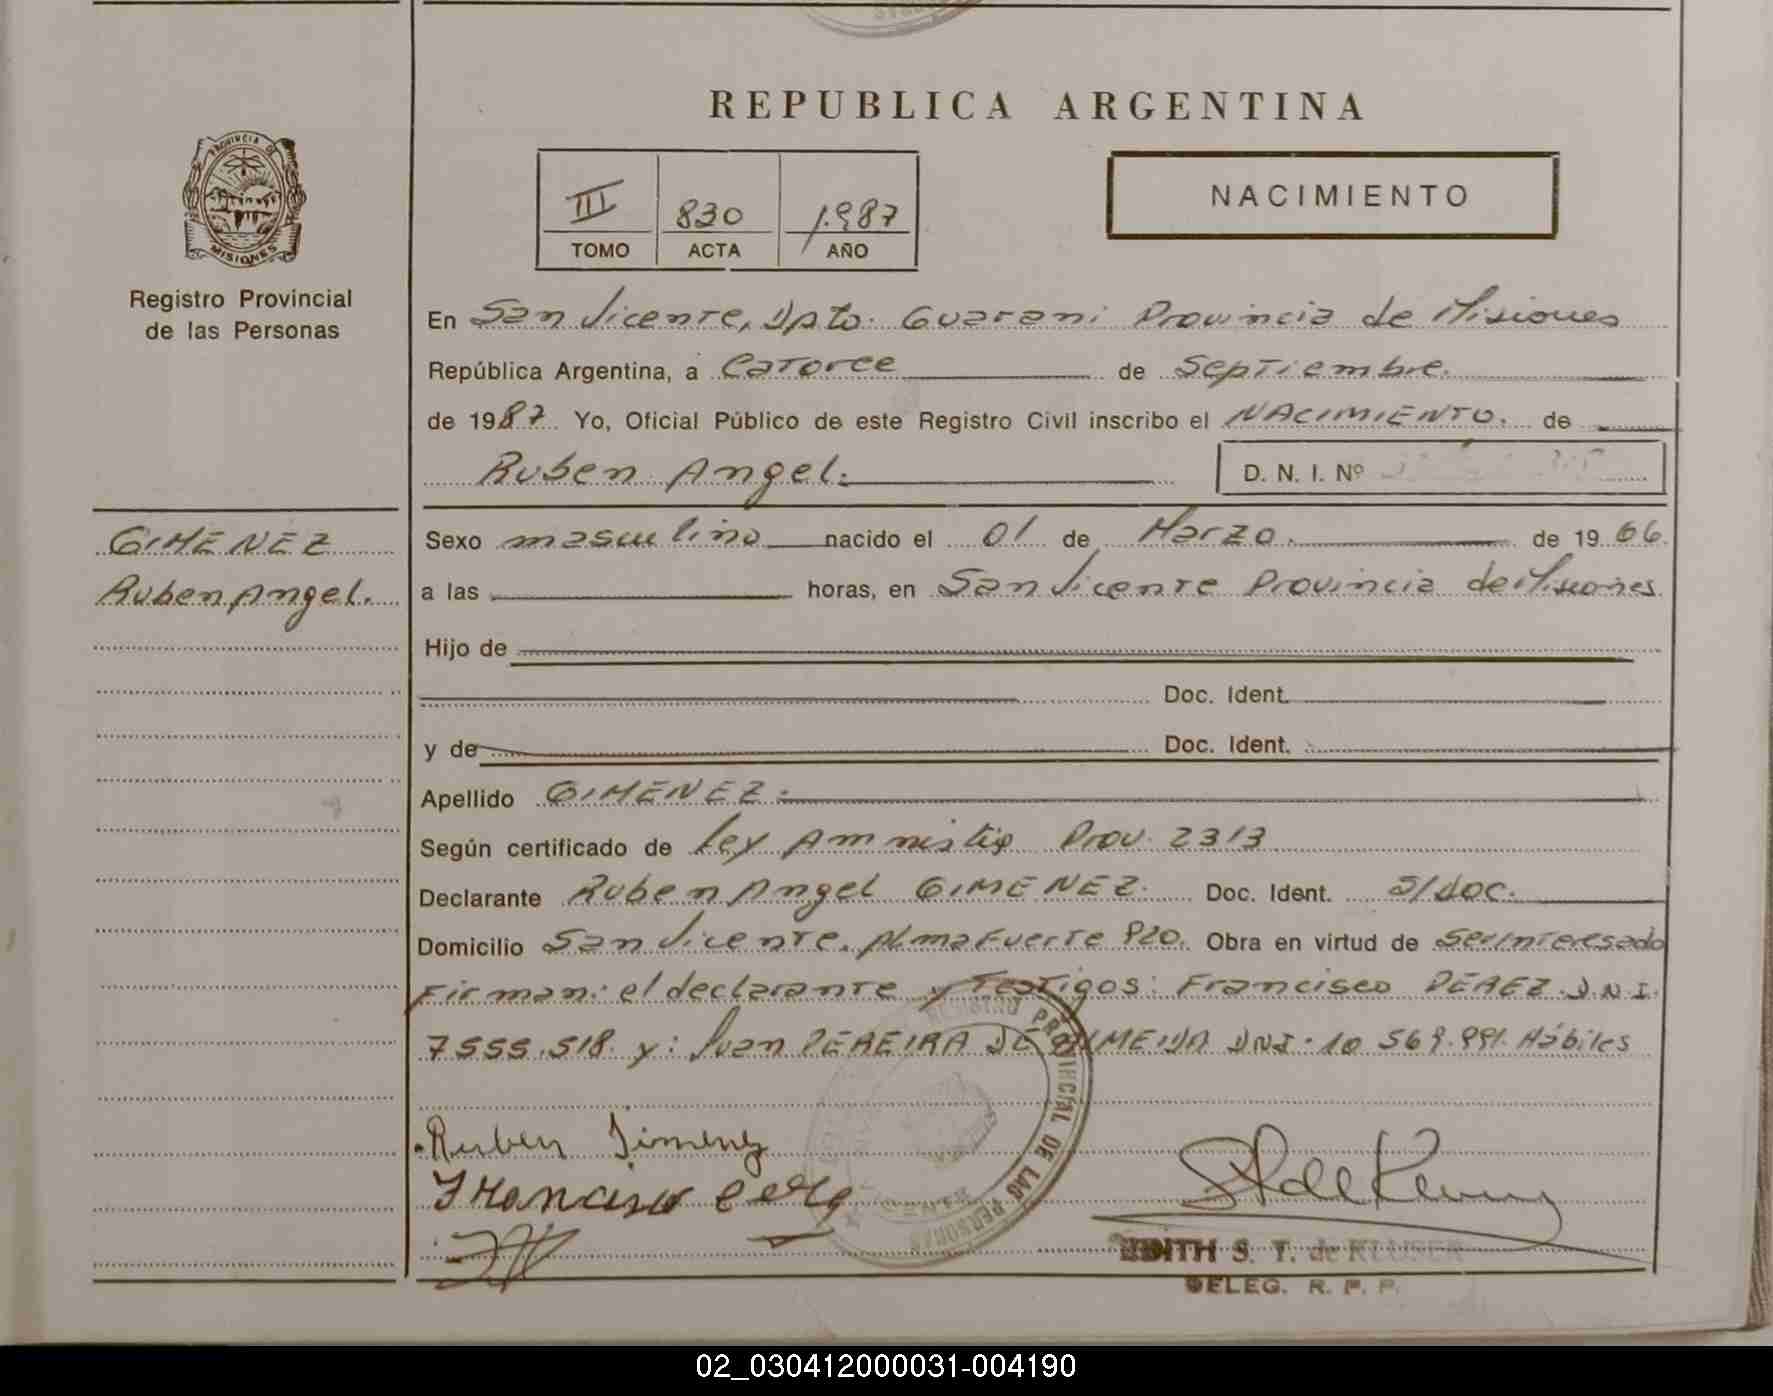 REPUBLICA ARGENTINA
NACIMIENTO
III 830 1.987
TOMO ACTA AÑO
PROVINCIA DE
MISIONES
Registro Provincial
de las Personas
En San Vicente, Dpto. Guarani Provincia de Misiones
República Argentina, a Catorce de Septiembre.
de 1987 Yo, Oficial Público de este Registro Civil inscribo el NACIMIENTO. de
Ruben Angel.
D. N. I. Nº
GIMENEZ
Ruben Angel.
Sexo masculino nacido el 01 de Marzo. de 1966.
a las horas, en San Vicente Provincia de Misiones
Hijo de
Doc. Ident.
y de Doc. Ident.
Apellido GIMENEZ.
Según certificado de Ley Amnistia Prov. 2313
Declarante Ruben Angel GIMENEZ. Doc. Ident. S/doc.
Domicilio San Vicente. Almafuerte 920. Obra en virtud de Ser Interesado
Firman: el declarante y Testigos: Francisco PEREZ. D.N.I.
7555.518. y: Juan PEREIRA DE ALMEIDA DNI. 10 569.991. Hábiles
REGISTRO PROVINCIAL DE LAS PERSONAS
Ruben Jimenez
Francisco Perez
JUDITH S. T. de KLUSER
DELEG. R. P. P.
02_030412000031-004190